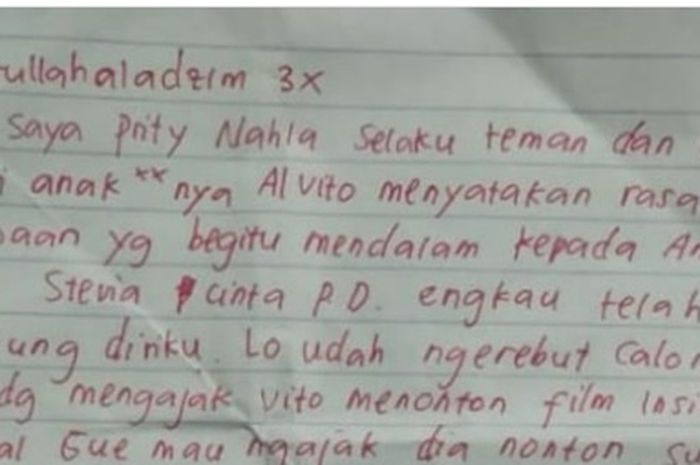 ullahaladzim 3x
Saya Prity Nahla Selaku teman dan
i anak **nya Al Vito menyatakan rasa
aan yg begitu mendalam kepada An
Stevia cinta P.D. engkau telah
ung diriku. Lo udah ngerebut calon
dg mengajak vito menonton film Insi
al Gue mau ngajak dia nonton su